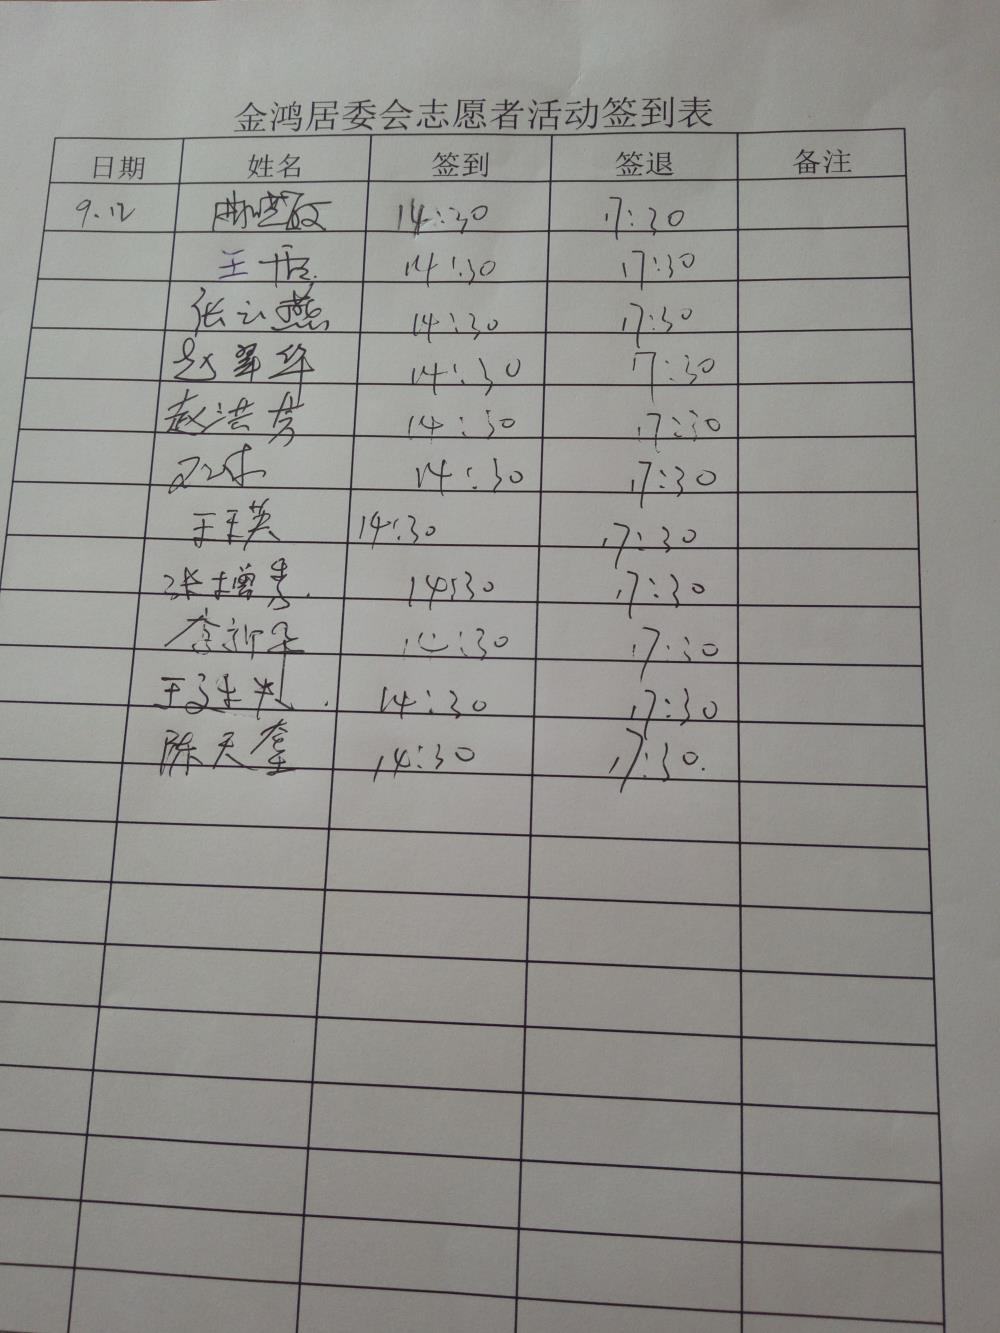 金鸿居委会志愿者活动签到表
日期 姓名 签到 签退 备注
9.12 14:30 17:30
王 14:30 17:30
张云燕 14:30 17:30
赵翠华 14:30 17:30
赵洪芳 14:30 17:30
14:30 17:30
王玉英 14:30 17:30
张增秀 14:30 17:30
李 14:30 17:30
王 14:30 17:30
陈天奎 14:30 17:30